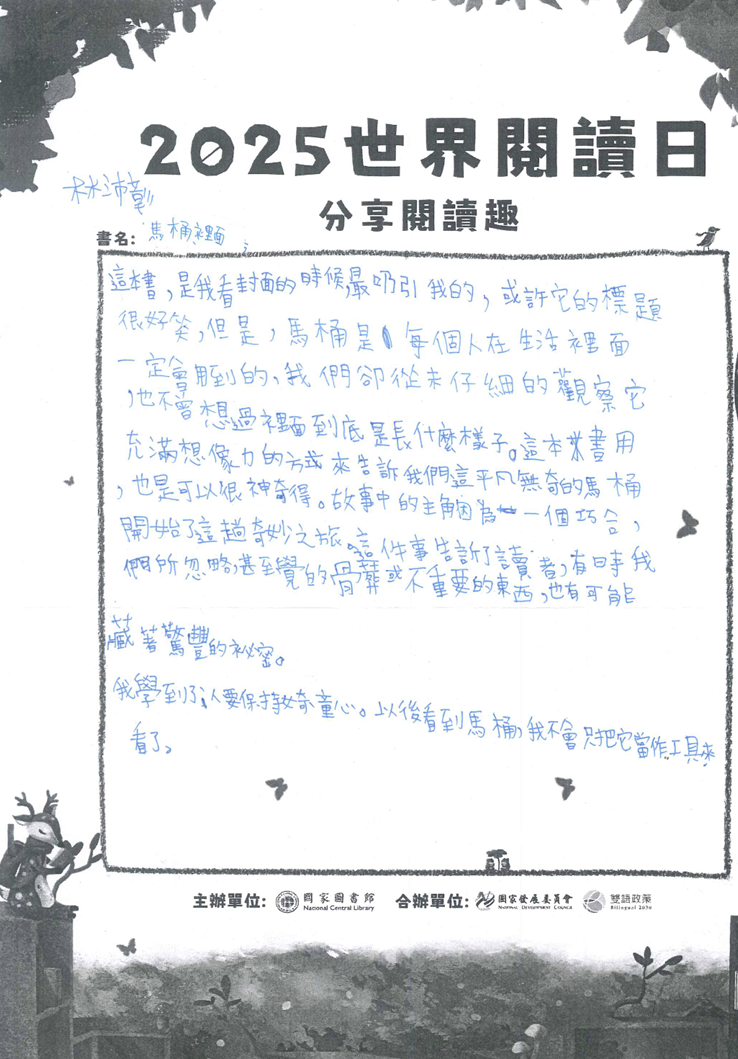 2025世界閱讀日
林沛彰
分享閱讀趣
書名：馬桶裡面
這本書，是我看封面的時候，最吸引我的，或許它的標題
很好笑，但是，馬桶是每個人在生活裡面
一定會用到的，我們卻從未仔細的觀察它
，也不會想過裡面到底是長什麼樣子。這本書用
充滿想像力的方式來告訴我們這平凡無奇的馬桶
，也是可以很神奇得。故事中的主角因為一個巧合，
開始了這趟奇妙之旅。這件事告訴了讀者，有時我
們所忽略，甚至覺的骨髒或不重要的東西，也有可能
藏著驚豐的祕密。
我學到了，人要保持好奇童心。以後看到馬桶，我不會只把它當作工具來
看了。
主辦單位： 國家圖書館 National Central Library 合辦單位： 國家發展委員會 NATIONAL DEVELOPMENT COUNCIL 雙語政策 Bilingual 2030